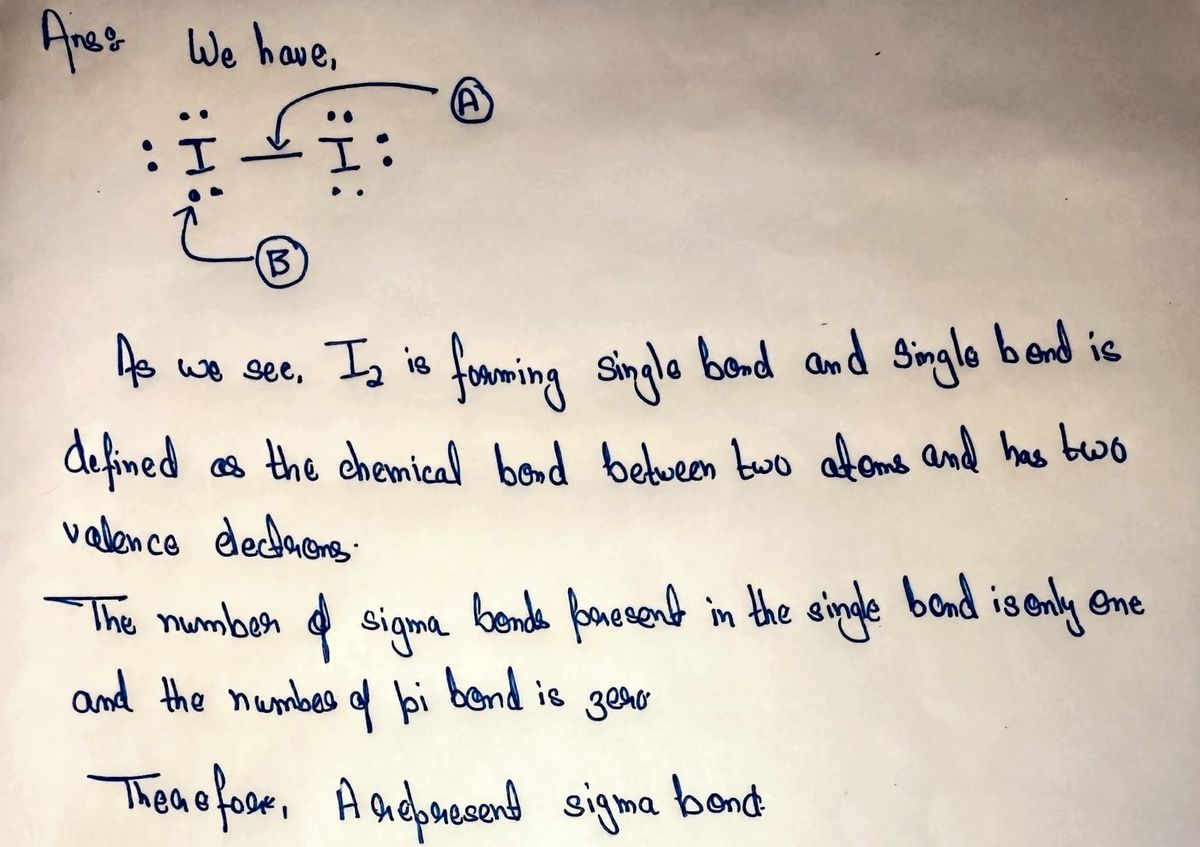 Ans: We have,
A
: I — I :
B
As we see, I₂ is forming single bond and single bond is
defined as the chemical bond between two atoms and has two
valence electrons.
The number of sigma bonds present in the single bond is only one
and the number of pi bond is zero
Therefore, A represent sigma bond.